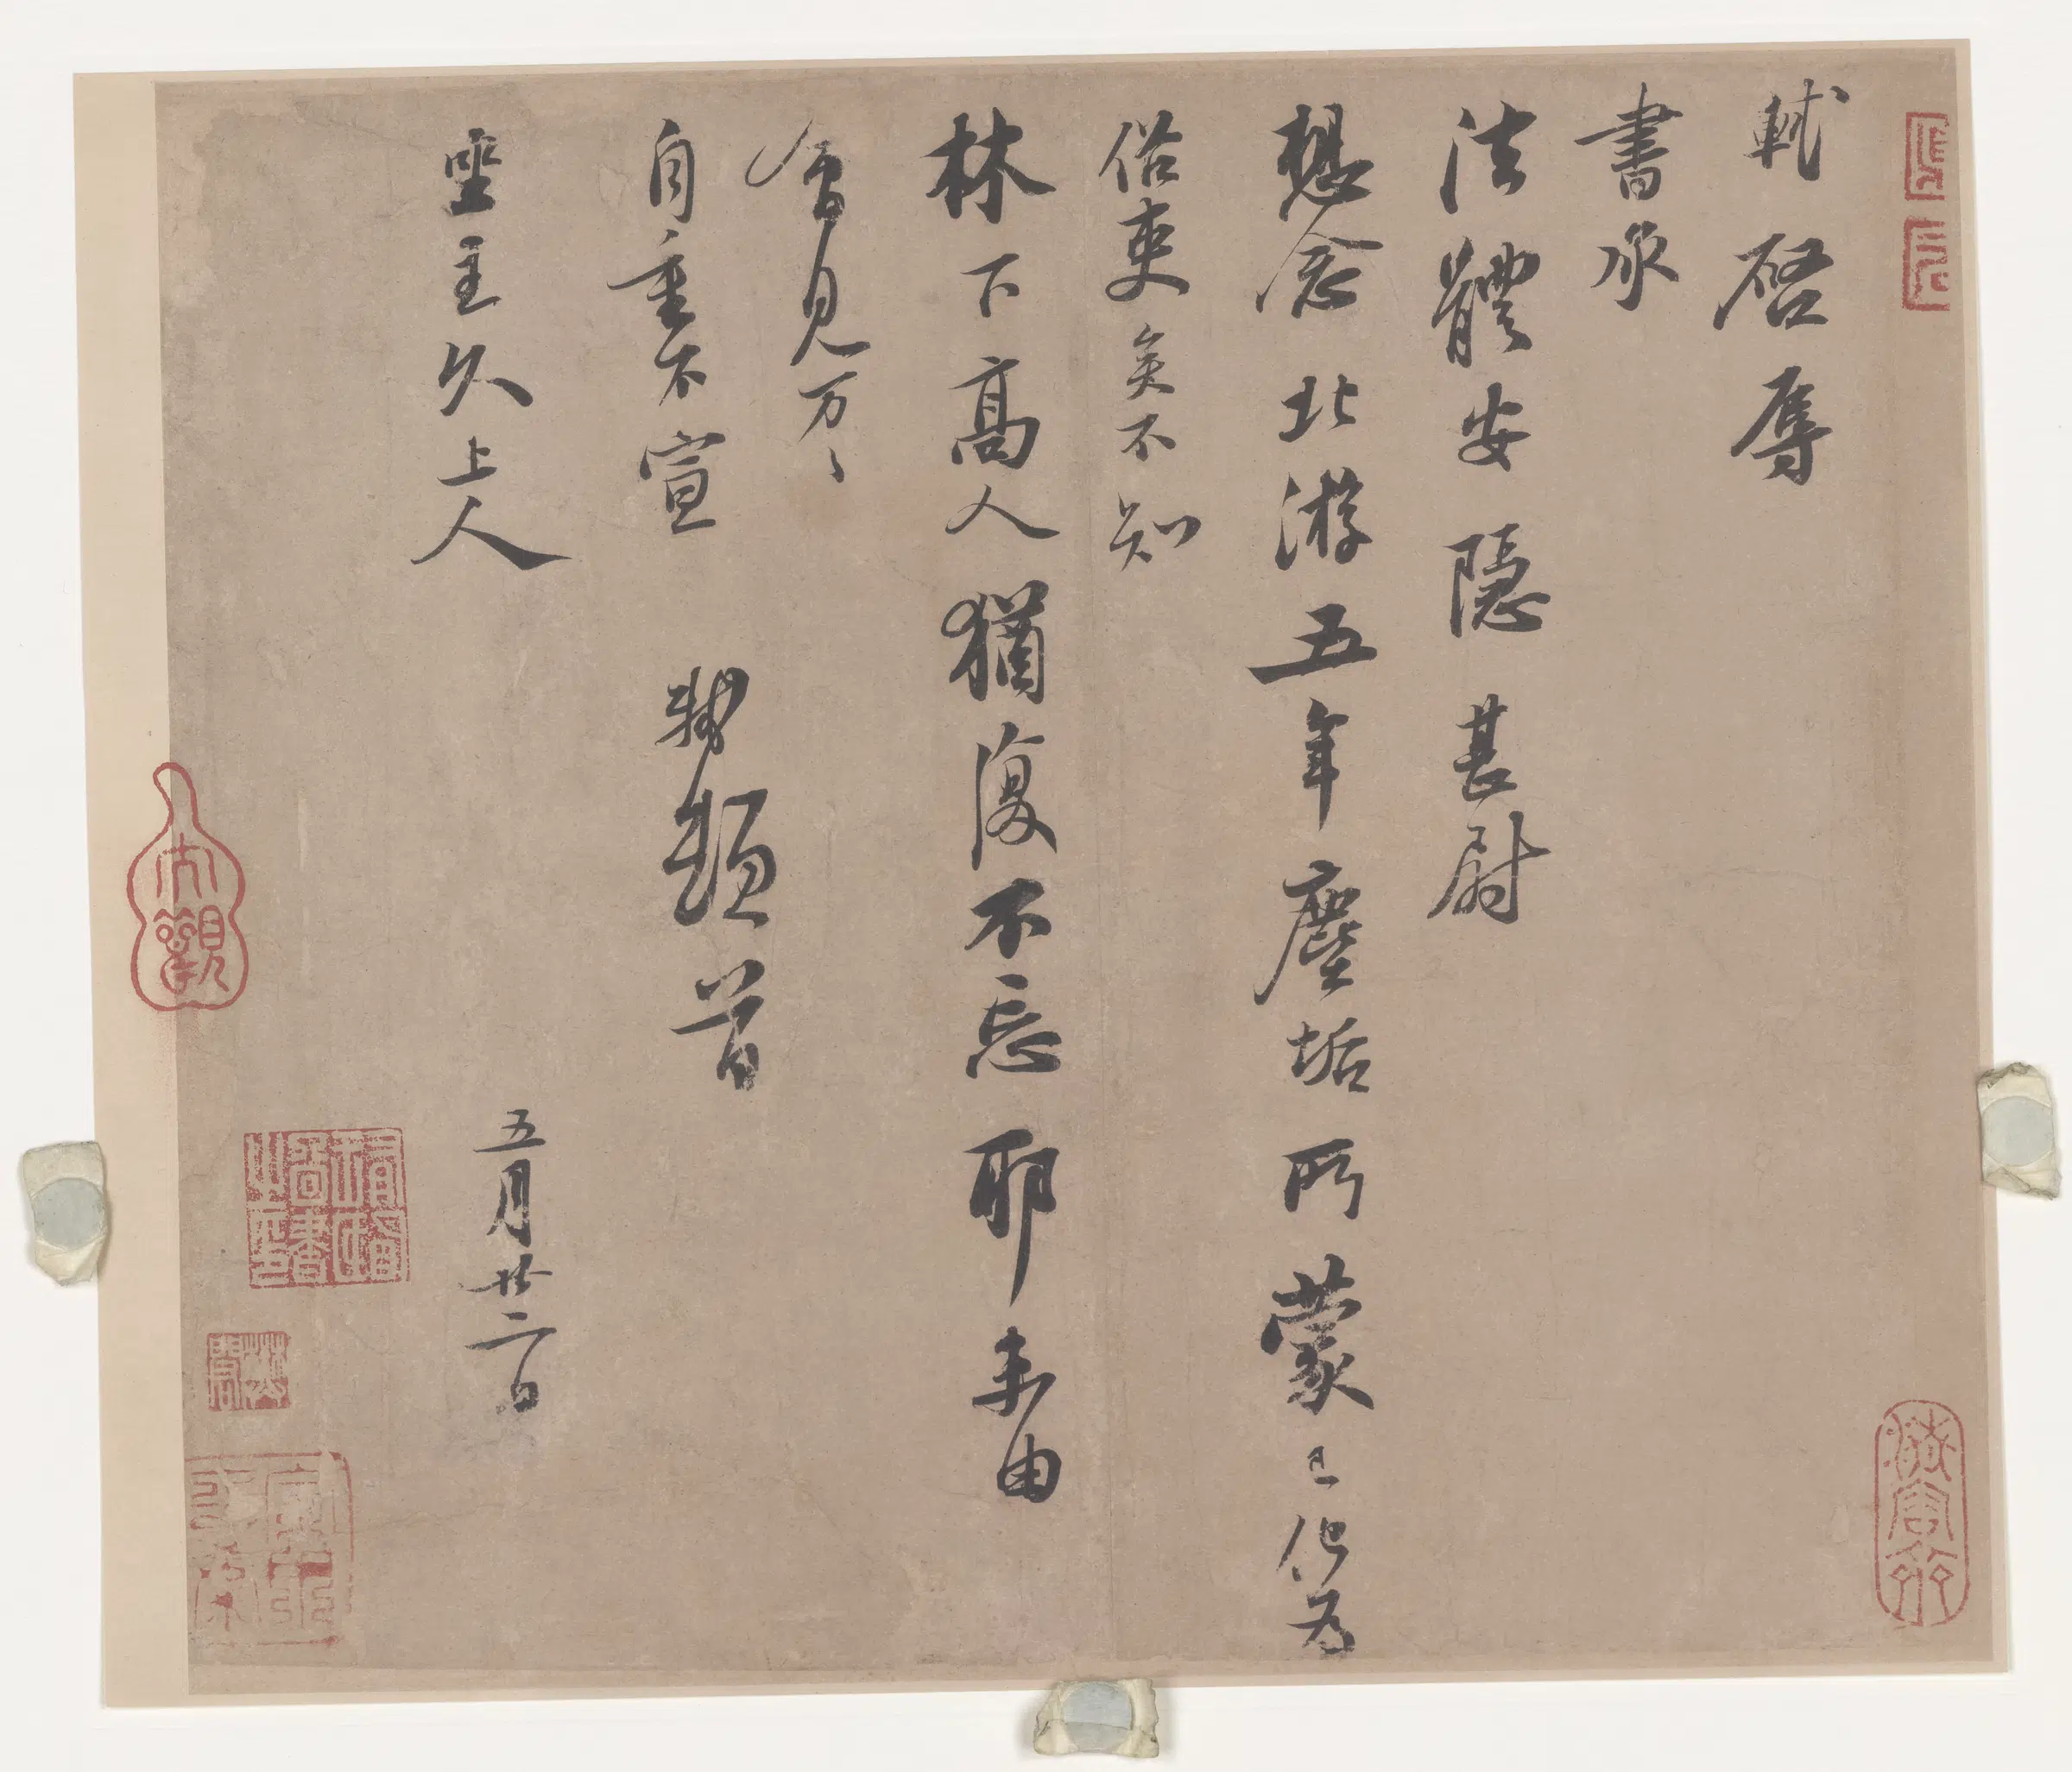 軾啓辱
書承
法體安隱甚慰
想念北游五年塵垢所蒙已化為
俗吏矣不知
林下高人猶復不忘耶未由
會見万〻
自重不宣
軾頓首
坐主久上人
五月廿二日
大觀